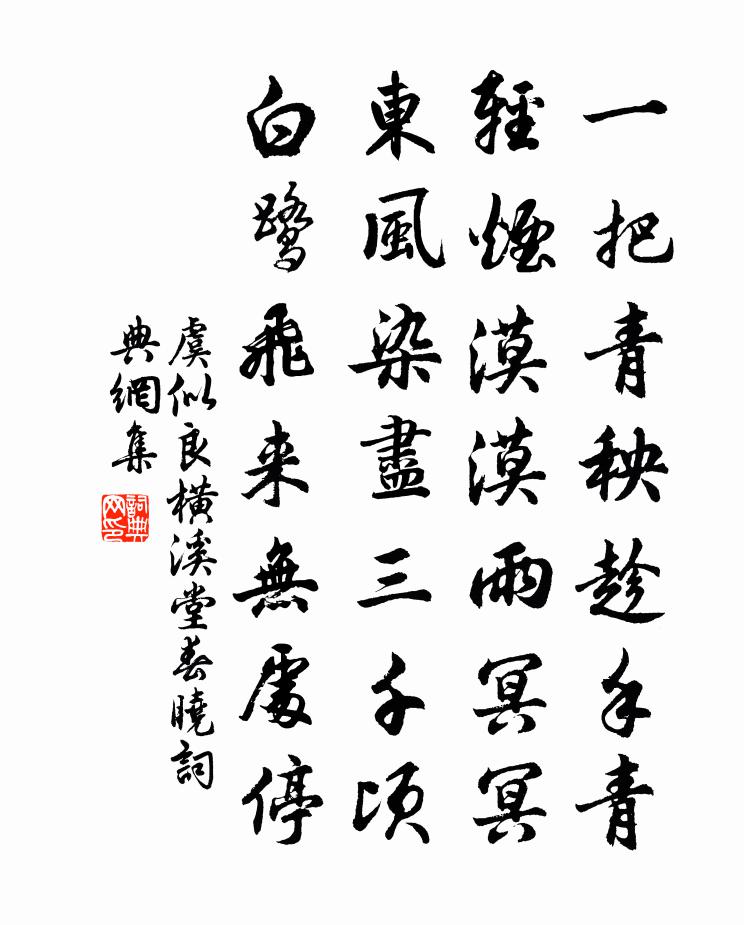 一把青秧趁手青
輕煙漠漠雨冥冥
東風染盡三千頃
白鷺飛来無處停
虞似良橫溪堂春曉詞
典網集
詞典网印